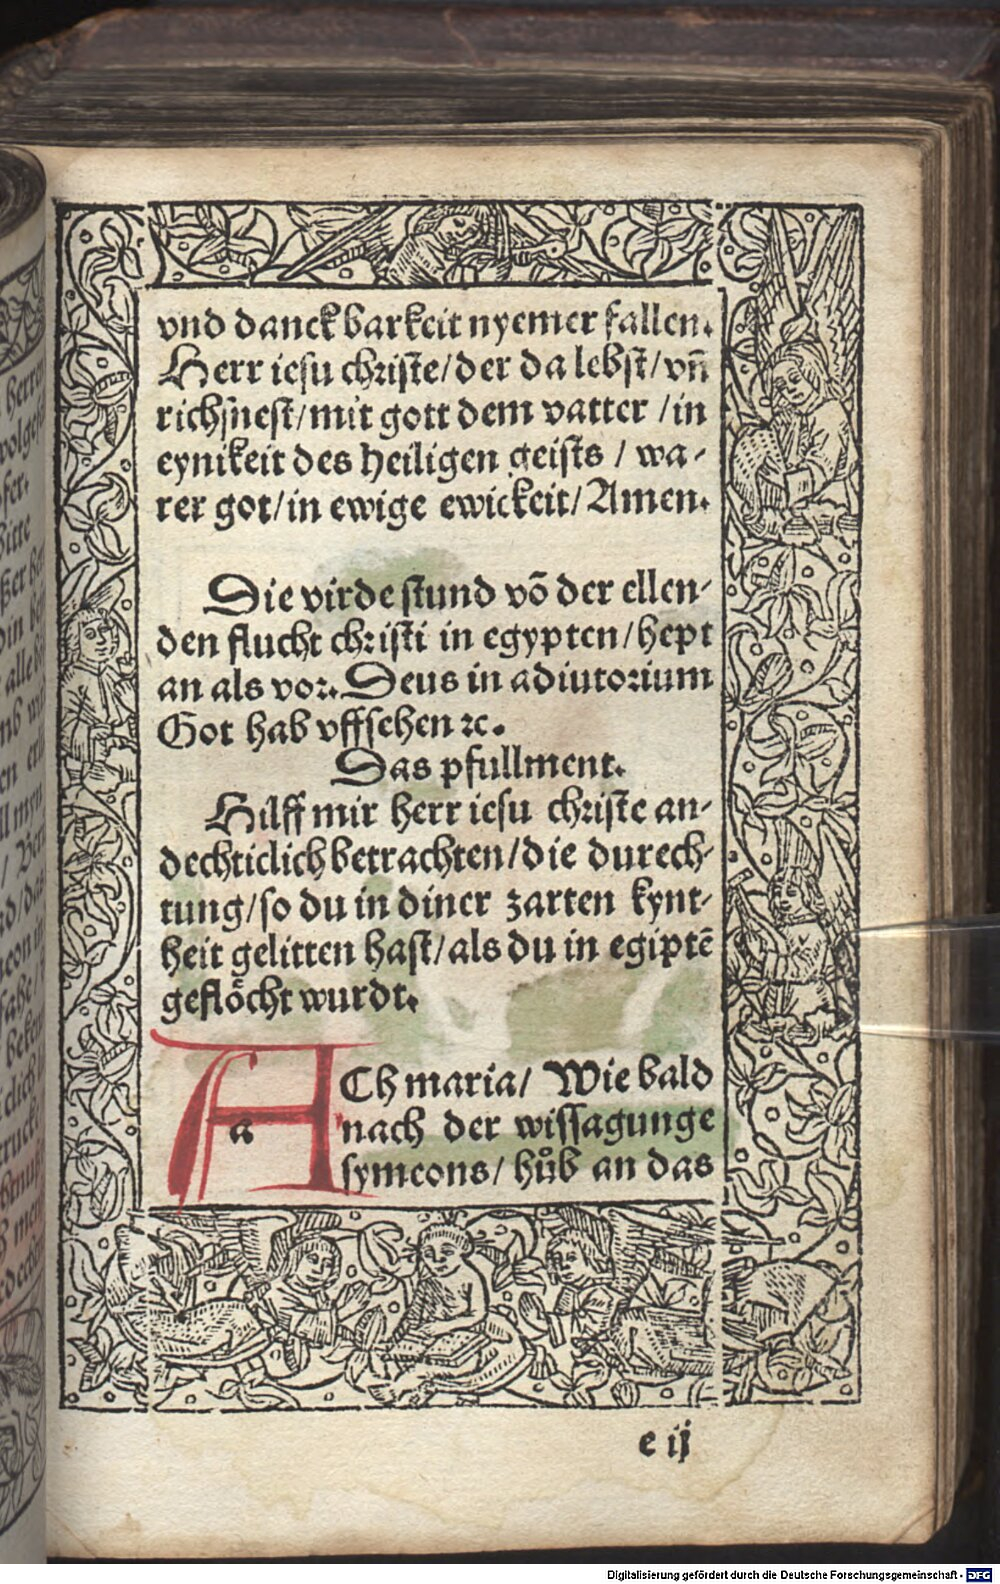 vnd danckbarkeit nyemer fallen.
Herr iesu christe/der da lebst/vn̄
richsnest/mit gott dem vatter /in
eynikeit des heiligen geists / wa-
rer got/in ewige ewickeit/Amen.
Die virde stund vō der ellen-
den flucht christi in egypten/hept
an als vor. Deus in adiutorium
Got hab vffsehen ꝛc.
Das pfullment.
Hilff mir herr iesu christe an-
dechticlich betrachten/die durech-
tung/so du in diner zarten kynt-
heit gelitten hast/als du in egiptē
geflöcht wurdt.
ACh maria/ Wie bald
a
nach der wissagunge
symeons/ hůb an das
e ij
Digitalisierung gefördert durch die Deutsche Forschungsgemeinschaft - DFG